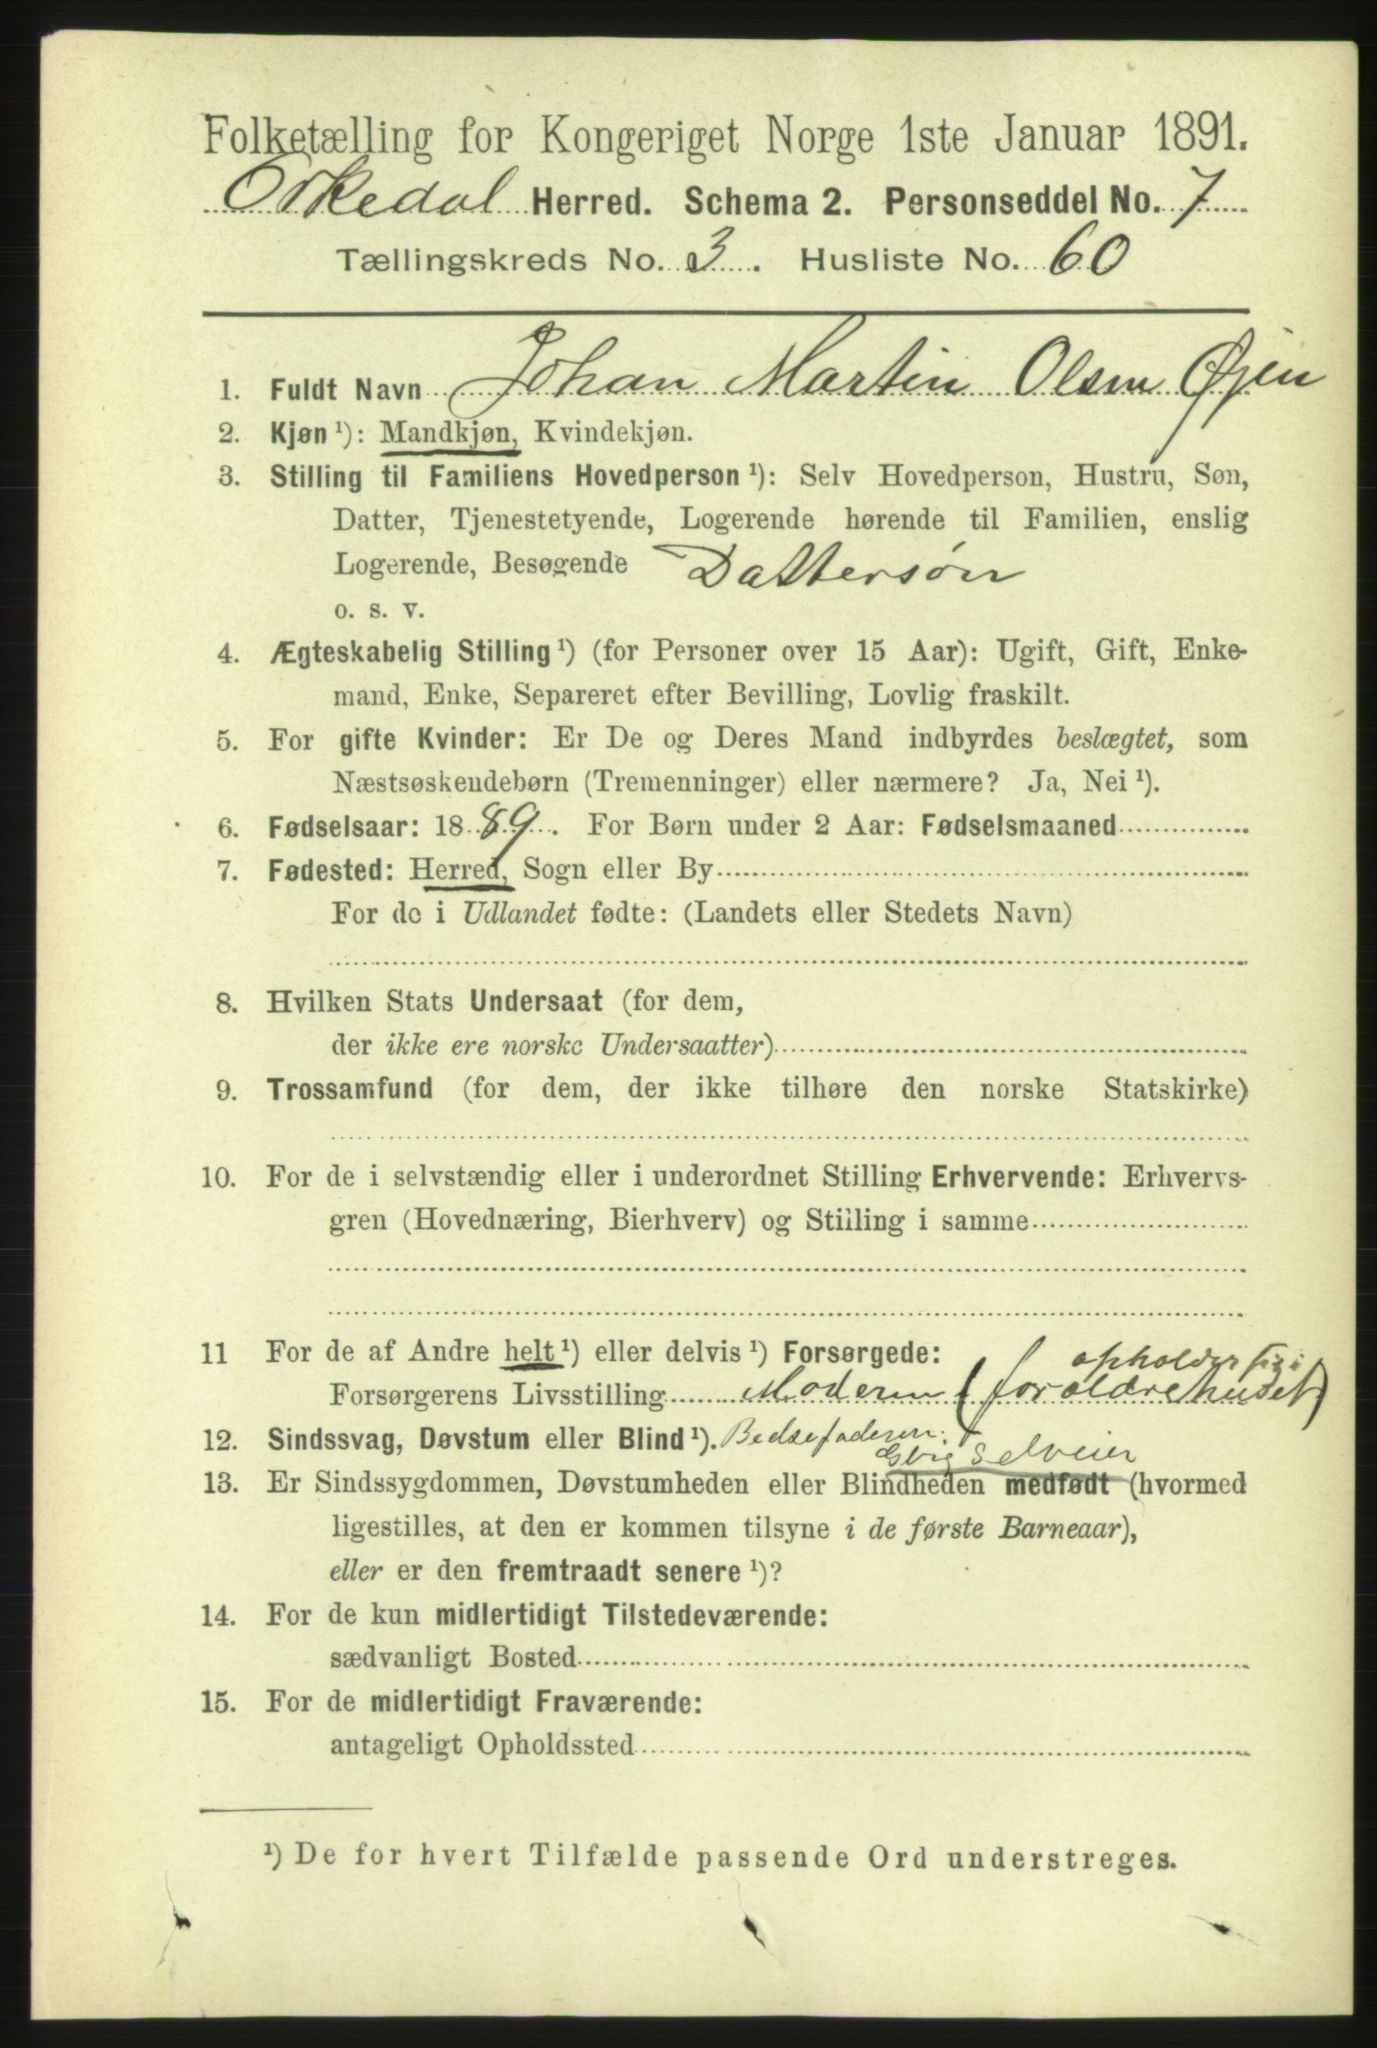 Folketælling for Kongeriget Norge 1ste Januar 1891.
Orkedal Herred. Schema 2. Personseddel No. 7
Tællingskreds No. 3. Husliste No. 60
1. Fuldt Navn Johan Martin Olsen Øyen
2. Kjøn ¹): Mandkjøn, Kvindekjøn.
3. Stilling til Familiens Hovedperson ¹): Selv Hovedperson, Hustru, Søn,
Datter, Tjenestetyende, Logerende hørende til Familien, enslig
Logerende, Besøgende Dattersøn
o. s. v.
4. Ægteskabelig Stilling ¹) (for Personer over 15 Aar): Ugift, Gift, Enke-
mand, Enke, Separeret efter Bevilling, Lovlig fraskilt.
5. For gifte Kvinder: Er De og Deres Mand indbyrdes beslægtet, som
Næstsøskendebørn (Tremenninger) eller nærmere? Ja, Nei ¹).
6. Fødselsaar: 1889. For Børn under 2 Aar: Fødselsmaaned
7. Fødested: Herred, Sogn eller By
For de i Udlandet fødte: (Landets eller Stedets Navn)
8. Hvilken Stats Undersaat (for dem,
der ikke ere norske Undersaatter)
9. Trossamfund (for dem, der ikke tilhøre den norske Statskirke)
10. For de i selvstændig eller i underordnet Stilling Erhvervende: Erhvervs-
gren (Hovednæring, Bierhverv) og Stilling i samme
11 For de af Andre helt ¹) eller delvis ¹) Forsørgede:
opholder sig i
Forsørgerens Livsstilling Moderen (forældrehuset)
12. Sindssvag, Døvstum eller Blind ¹). Bedsefaderen:
Gbrg Selveier
13. Er Sindssygdommen, Døvstumheden eller Blindheden medfødt (hvormed
ligestilles, at den er kommen tilsyne i de første Barneaar),
eller er den fremtraadt senere ¹)?
14. For de kun midlertidigt Tilstedeværende:
sædvanligt Bosted
15. For de midlertidigt Fraværende:
antageligt Opholdssted
¹) De for hvert Tilfælde passende Ord understreges.